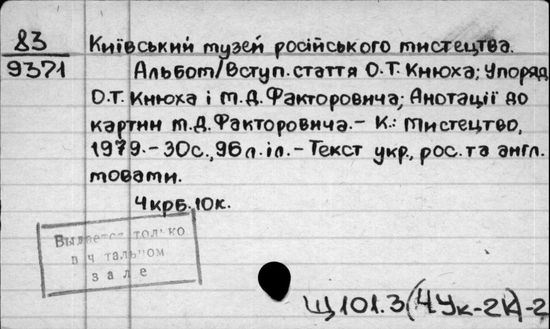 83
9371
Київський музей російського мистецтва.
Альбом/Вступ.стаття О.Т. Кнюха; Упоряд
О.Т. Кнюха і М.Д. Факторовича; Анотації до
картин М.Д. Факторовича.- К.: Мистецтво,
1979.- 30с., 96л.іл.- Текст укр., рос. та англ.
мовами.
4крб.10к.
Выдается только
в читальном
зале
Щ101.3(4Ук-2К)-2